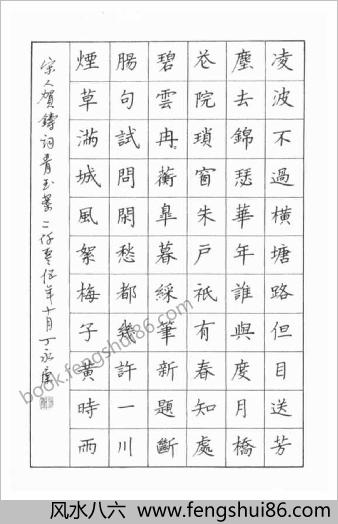 凌波不過橫塘路但目送芳
塵去錦瑟華年誰與度月橋
花院瑣窗朱戶祇有春知處
碧雲冉々蘅皐暮綵筆新題斷
腸句試問閑愁都幾許一川
煙草滿城風絮梅子黃時雨
宋人賀鑄詞青玉案二仟零伍年十月丁永康
book.fengshui86.com
风水八六 www.fengshui86.com